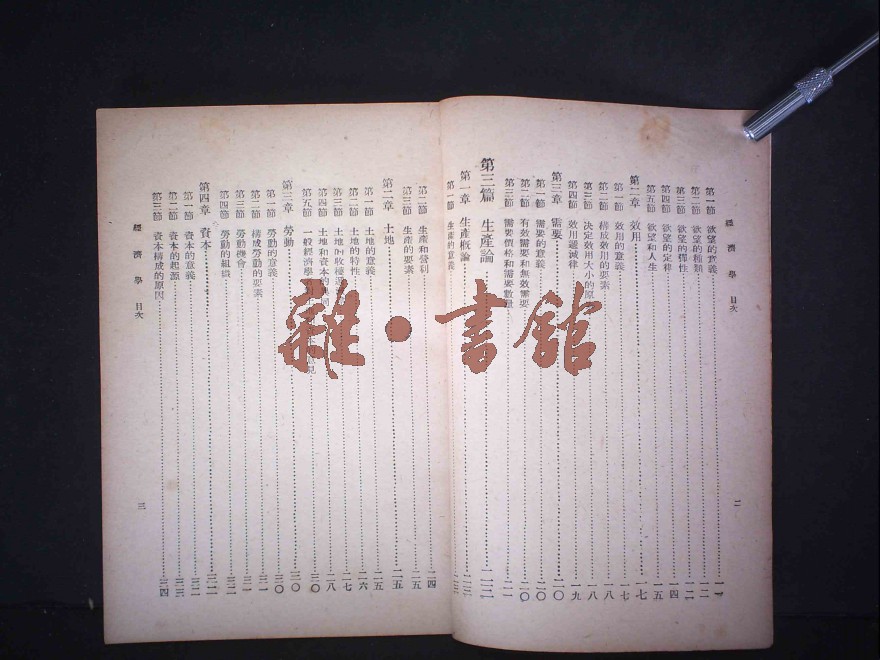 經濟學 目次
二
第一節 欲望的意義
第二節 欲望的種類
第三節 欲望的彈性
第四節 欲望的定律
第五節 欲望和人生
第二章 效用 一七
第一節 效用的意義 一七
第二節 構成效用的要素 一八
第三節 決定效用大小的原 一八
第四節 效用遞減律 一九
第三章 需要 二〇
第一節 需要的意義 二〇
第二節 有效需要和無效需要 二〇
第三節 需要價格和需要數量 二一
第三篇 生產論
第一章 生產概論
第一節 生產的意義
第二節 生產和營利 二四
第三節 生產的要素 二五
第二章 土地 二五
第一節 土地的意義 二五
第二節 土地的特性 二六
第三節 土地的收穫 二七
第四節 土地和資本的 二八
第五節 一般經濟學 見 三〇
第三章 勞動 三〇
第一節 勞動的意義 三〇
第二節 構成勞動的要素 三一
第三節 勞動機會 三一
第四節 勞動的組織 三二
第四章 資本 三二
第一節 資本的意義 三二
第二節 資本的起源 三三
第三節 資本構成的原因 三四
經濟學 目次
三
雜·書館